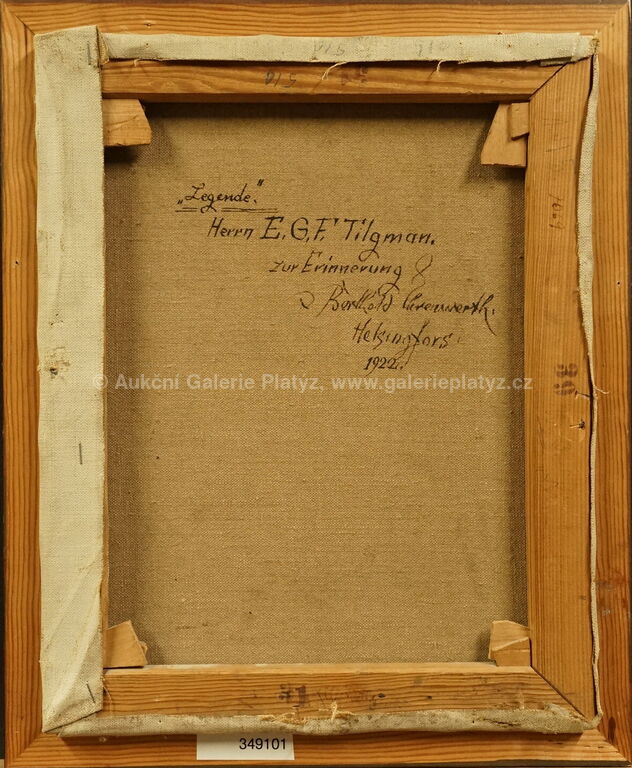 510
„Legende.“
Herrn E.G.F. Tilgman.
zur Erinnerung
Berthold
Helsingfors.
1922.
© Aukční Galerie Platyz, www.galerieplatyz.cz
349101